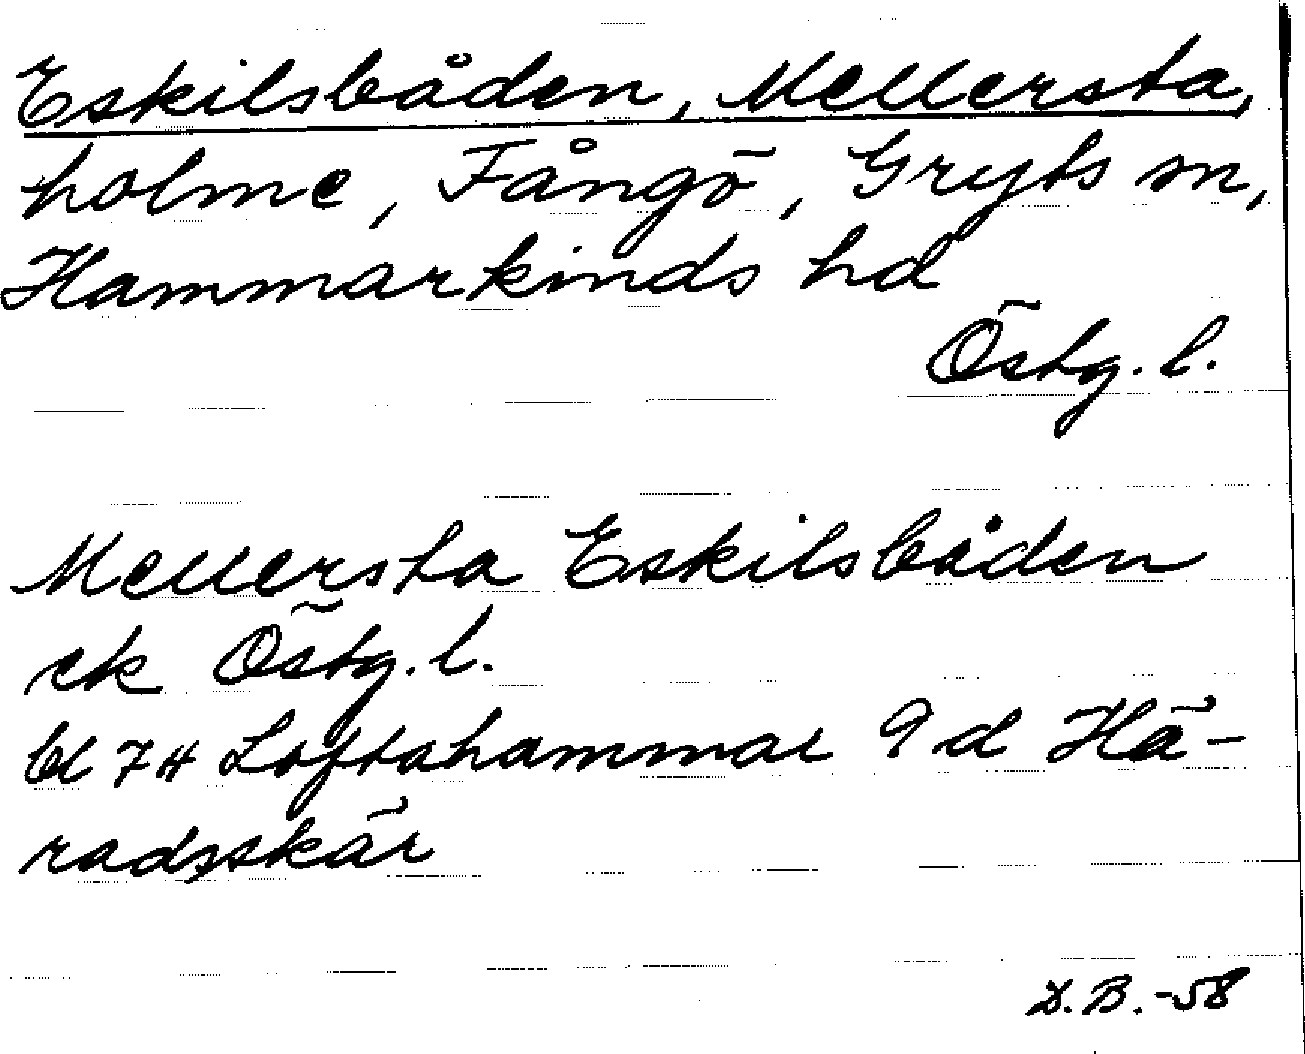 Eskilsbåden, Mellersta,
holme, Fångö, Gryts sn,
Hammarkinds hd
Östg. l.
Mellersta Eskilsbåden
ek Östg. l.
bl 7H Loftahammar 9d Hä-
radsskär
D.B.-58